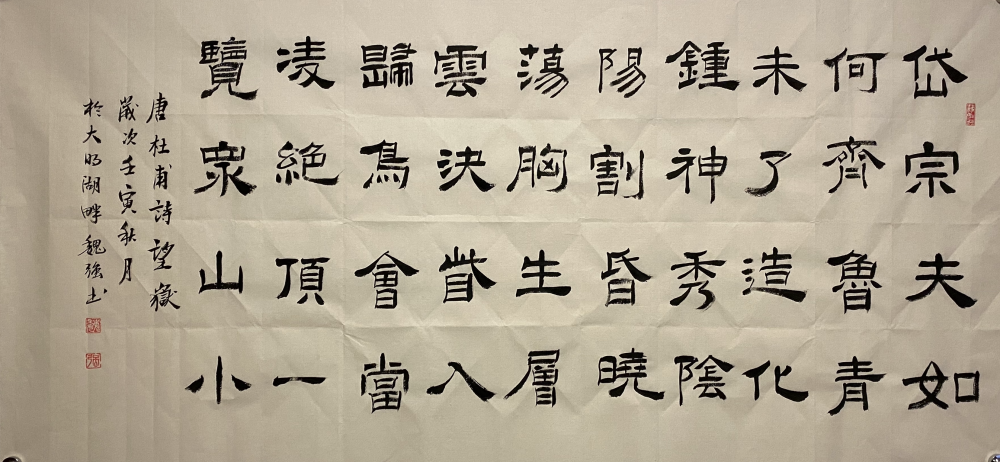 岱宗夫如
何齊魯青
未了造化
鍾神秀陰
陽割昏曉
蕩胸生層
雲決眥入
歸鳥會當
凌絕頂一
覽眾山小
唐杜甫詩望嶽
歲次壬寅秋月
於大明湖畔魏強书